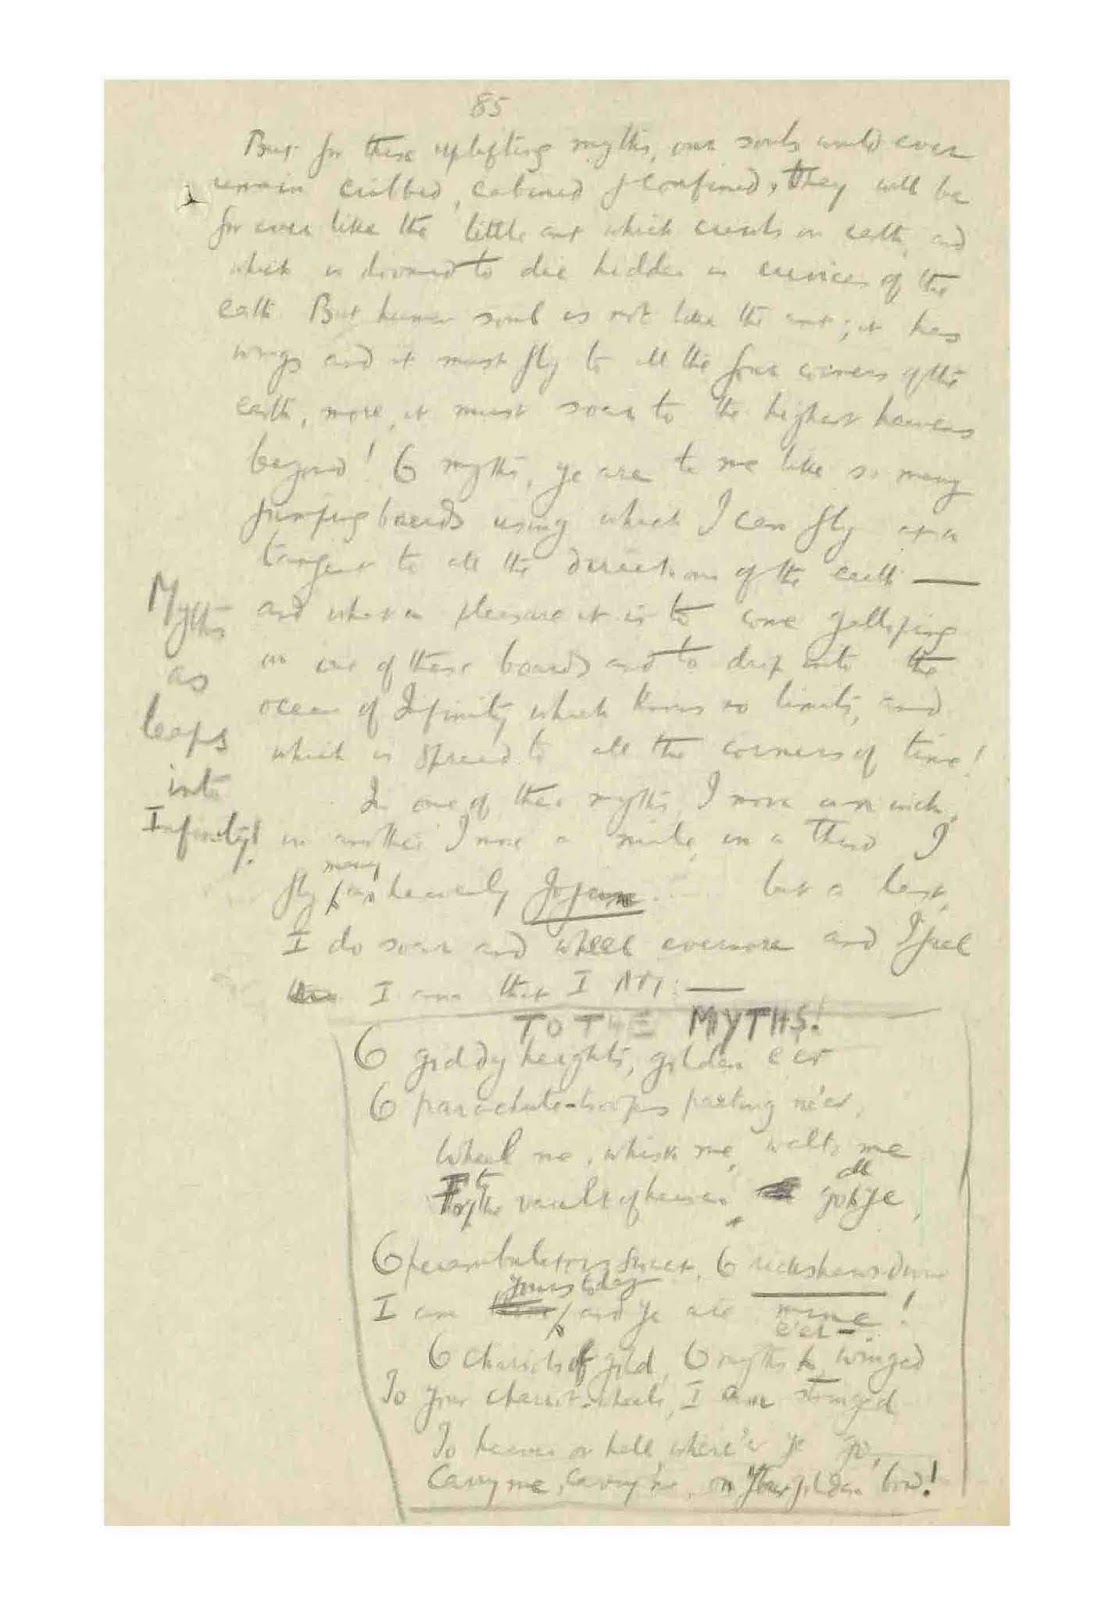 85
But for these uplifting myths, our souls would ever
remain cribbed, cabined & confined, they will be
for ever like the little ant which crawls on earth, and
which is doomed to die hidden in crevices of the
earth. But human soul is not like the ant; it has
wings and it must fly to all the four corners of the
earth, more, it must soar to the highest heavens
beyond! O myths, ye are to me like so many
jumping boards using which I can fly at a
tangent to all the directions of the earth —
and what a pleasure it is to come galloping
on one of these boards and to drop into the
ocean of Infinity which knows no limits, and
which is spread to all the corners of time!
Myths
as
leaps
into
Infinity!
In one of these myths, I move an inch,
in another I move a mile, in a third I
fly many heavenly ... but a last,
I do soar and wheel evermore and I feel
I am that I AM: —
TO THE MYTHS!
O giddy heights, golden e'er
O parachute-troops parting ne'er,
Wheel me, whisk me, waltz me
To the vault of heaven, all go ye,
O perambulators sweet, O rickshaws divine
I am yours today, and ye are e'er mine!
O chariots of gold, O myths winged
To your chariot-wheels, I am stringed
To heaven or hell, where'er ye go,
Carry me, carry me, on your golden bow!